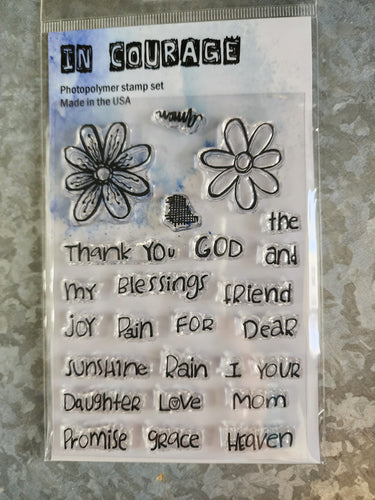 IN COURAGE
Photopolymer stamp set
Made in the USA
the
Thank You GOD and
my Blessings friend
Joy Pain FOR Dear
Sunshine Rain I YOUR
Daughter Love mom
Promise grace Heaven